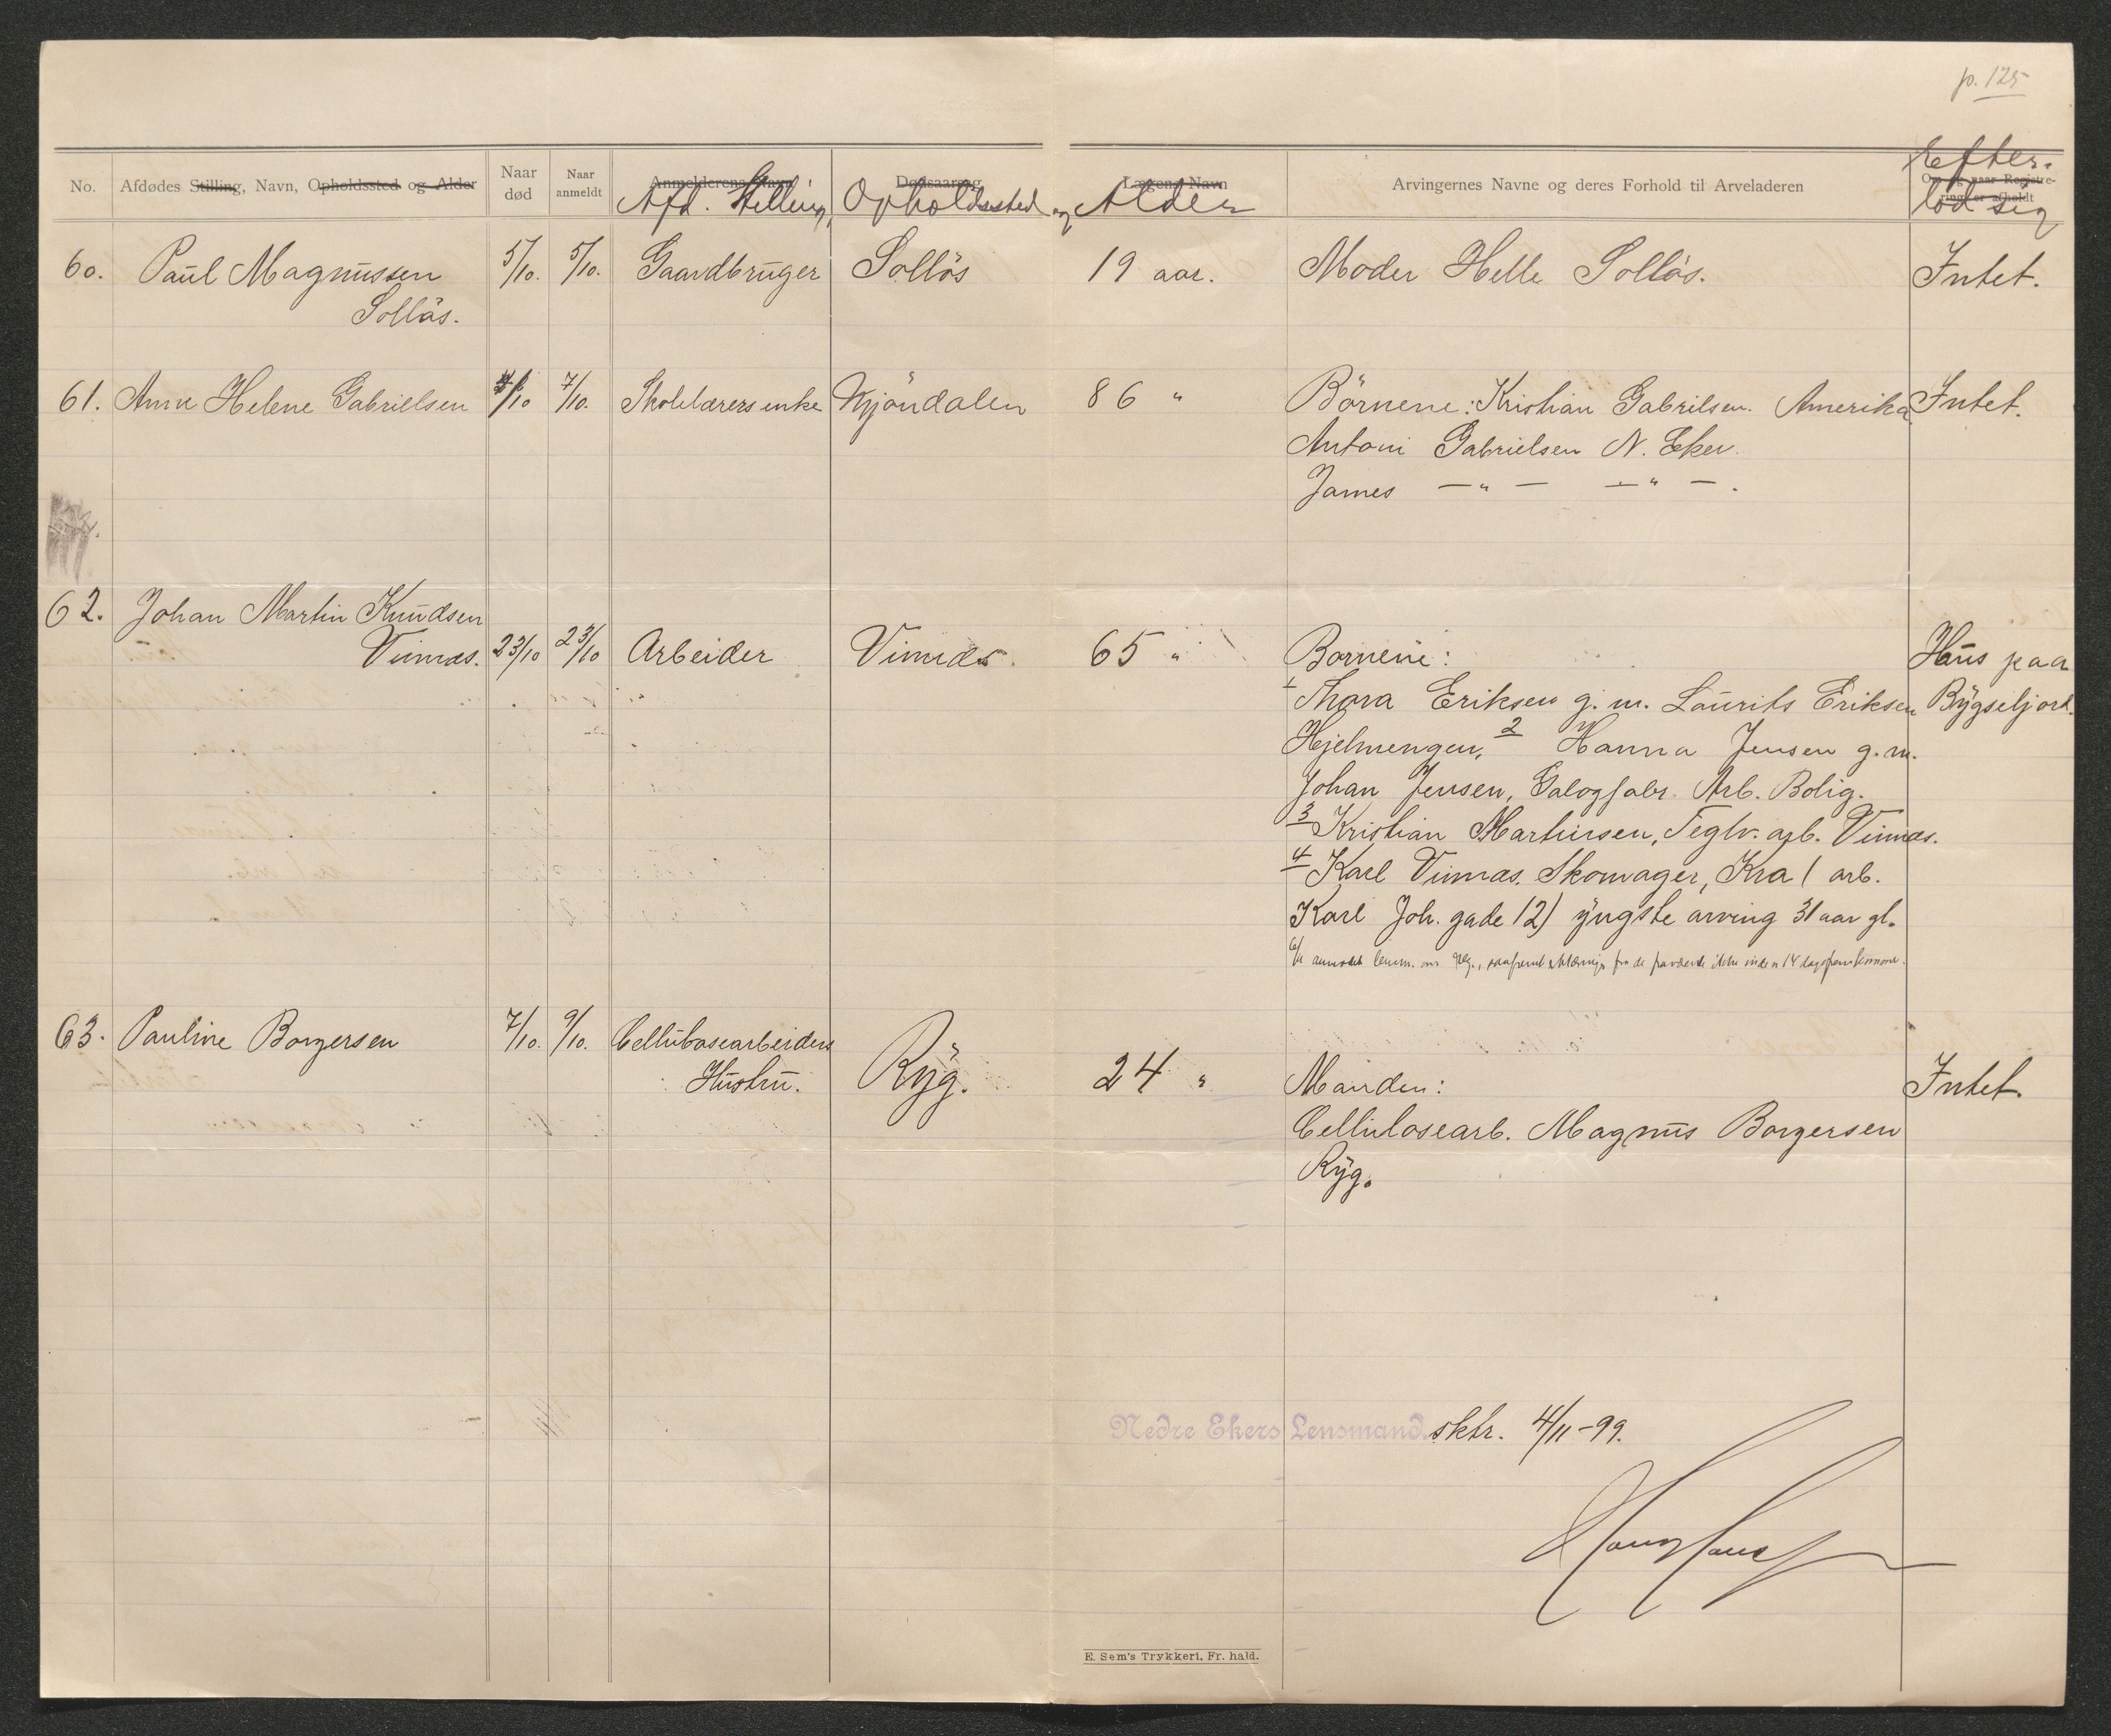 p. 125
No. Afdødes Stilling, Navn, Opholdssted og Alder Naar død Naar anmeldt Anmelderens Navn Dødsaarsag Lægens Navn Arvingernes Navne og deres Forhold til Arveladeren Om og naar Registrering er afholdt
Afd. Stilling, Opholdssted og Alder Efterlod sig
60. Paul Magnussen 5/10. 5/10. Gaardbruger Sollös 19 aar. Moder Helle Sollös. Intet.
Sollös.
61. Anne Helene Gabrielsen 4/10 7/10. Skolelærers enke Mjöndalen 86 " Börnene: Kristian Gabrilsen. Amerika Intet.
Antoni Gabrielsen N. Eker.
James — " — — " — .
62. Johan Martin Knudsen
Vinnæs. 23/10 23/10 Arbeider Vinnæs. 65 " Börnene: Haus paa
1 Thora Eriksen g. m. Laurits Eriksen Bygseljord.
Hjelmengen, 2 Hanna Jensen g. m.
Johan Jensen, Galogfabr. Arb. Bolig.
3 Kristian Martinsen, Teglv. arb. Vinnæs.
4 Karl Vinnæs. Skomager, Kra ( arb.
Karl Joh. gade 12) yngste arving 31 aar gl.
lensm. om erklæring fra de ikke inden 14 dage
63. Pauline Borgersen 7/10. 9/10. Cellulosearbeiders
Hustru. Ryg. 24 " Manden: Intet.
Cellulosearb. Magnus Borgersen
Ryg.
Nedre Ekers Lensmand sktr. 4/11-99.
E. Sem's Trykkeri, Fr. hald.